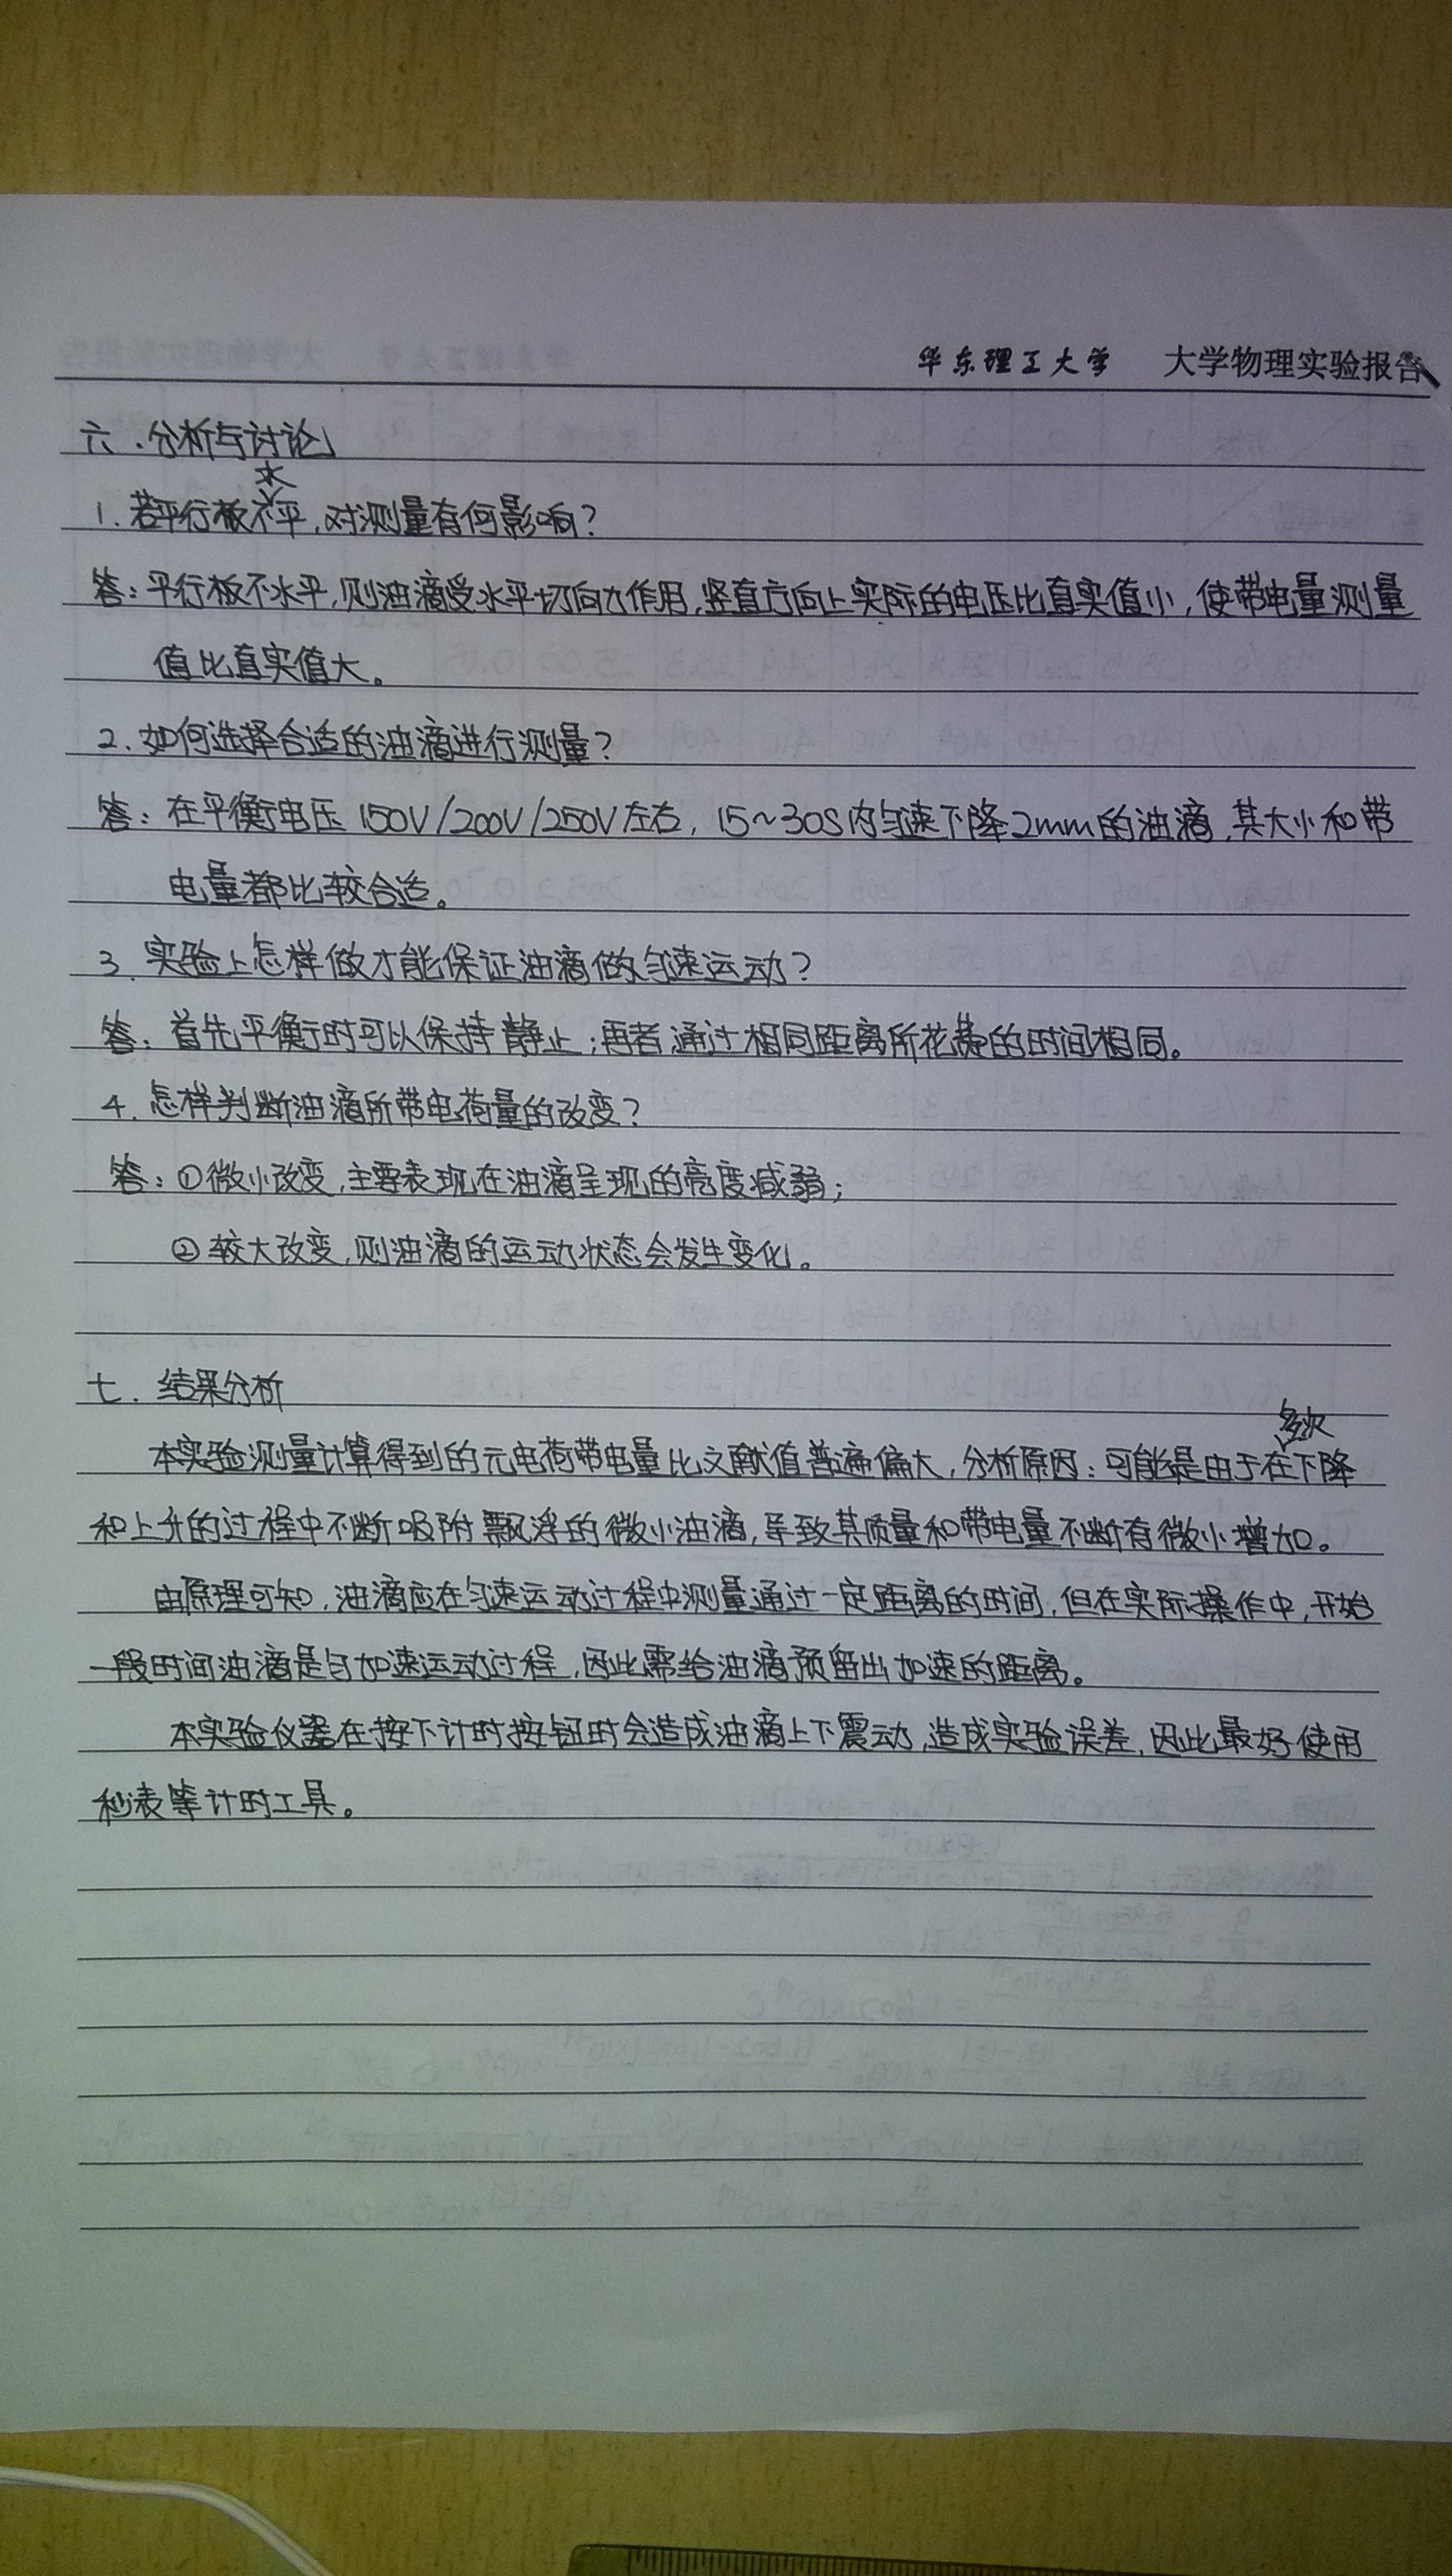 华东理工大学 大学物理实验报告
六.分析与讨论
1.若平行板不水平,对测量有何影响?
答:平行板不水平,则油滴受水平切向力作用,竖直方向上实际的电压比真实值小,使带电量测量
值比真实值大。
2.如何选择合适的油滴进行测量?
答:在平衡电压150V/200V/250V左右,15~30s内匀速下降2mm的油滴,其大小和带
电量都比较合适。
3.实验上怎样做才能保证油滴做匀速运动?
答:首先平衡时可以保持静止;再者,通过相同距离所花费的时间相同。
4.怎样判断油滴所带电荷量的改变?
答:①微小改变,主要表现在油滴呈现的亮度减弱;
②较大改变,则油滴的运动状态会发生变化。
七.结果分析
本实验测量计算得到的元电荷带电量比文献值普遍偏大,分析原因:可能是由于在多次下降
和上升的过程中不断吸附飘浮的微小油滴,导致其质量和带电量不断有微小增加。
由原理可知,油滴应在匀速运动过程中测量通过一定距离的时间,但在实际操作中,开始
一段时间油滴是匀加速运动过程,因此需给油滴预留出加速的距离。
本实验仪器在按下计时按钮时会造成油滴上下震动,造成实验误差,因此最好使用
秒表等计时工具。